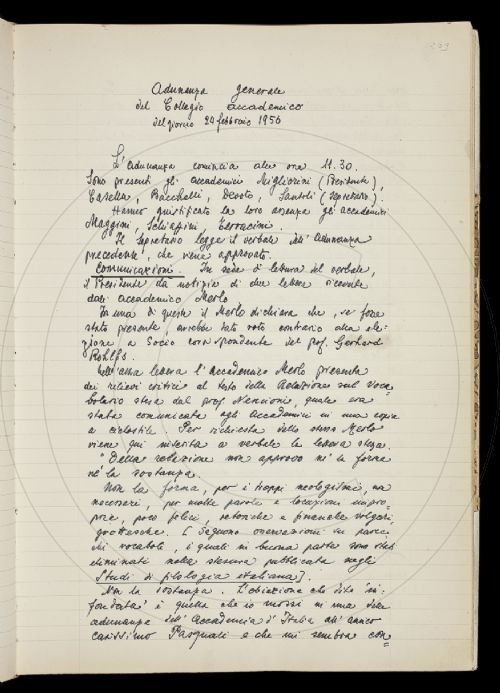 Adunanza generale
del Collegio accademico
del giorno 24 febbraio 1956
L'adunanza comincia alle ore 11.30.
Sono presenti gli accademici Migliorini (Presidente),
Casella, Bacchelli, Devoto, Santoli (segretario).
Hanno giustificato la loro assenza gli accademici
Maggini, Schiaffini, Terracini.
Il Segretario legge il verbale dell'adunanza
precedente, che viene approvato.
Comunicazioni. In sede di lettura del verbale,
il Presidente dà notizia di due lettere ricevute
dall'accademico Merlo
In una di queste il Merlo dichiara che, se fosse
stato presente, avrebbe dato voto contrario alla ele-
zione a Socio corrispondente del prof. Gerhard
Rohlfs.
Nell'altra lettera l'accademico Merlo presenta
dei rilievi critici al testo della Relazione sul Voca-
bolario stesa dal prof Nencioni, quale era
stata comunicata agli Accademici in una copia
a ciclostile. Per richiesta dello stesso Merlo
viene qui inserita a verbale la lettera stessa.
"Della relazione non approvo né la forma
né la sostanza.
Non la forma, per i troppi neologismi, non
necessari, per molte parole e locuzioni impro-
prie, poco felici, retoriche e finanche volgari,
grottesche. [Seguono osservazioni su parec-
chi vocaboli, i quali in buona parte sono stati
eliminati nella stesura pubblicata negli
Studi di filologia italiana].
Non la sostanza. L'obiezione che dite "in-
fondata" è quella che io mossi in una delle
adunanze dell'Accademia d'Italia all'amico
carissimo Pasquali e che mi sembra con=